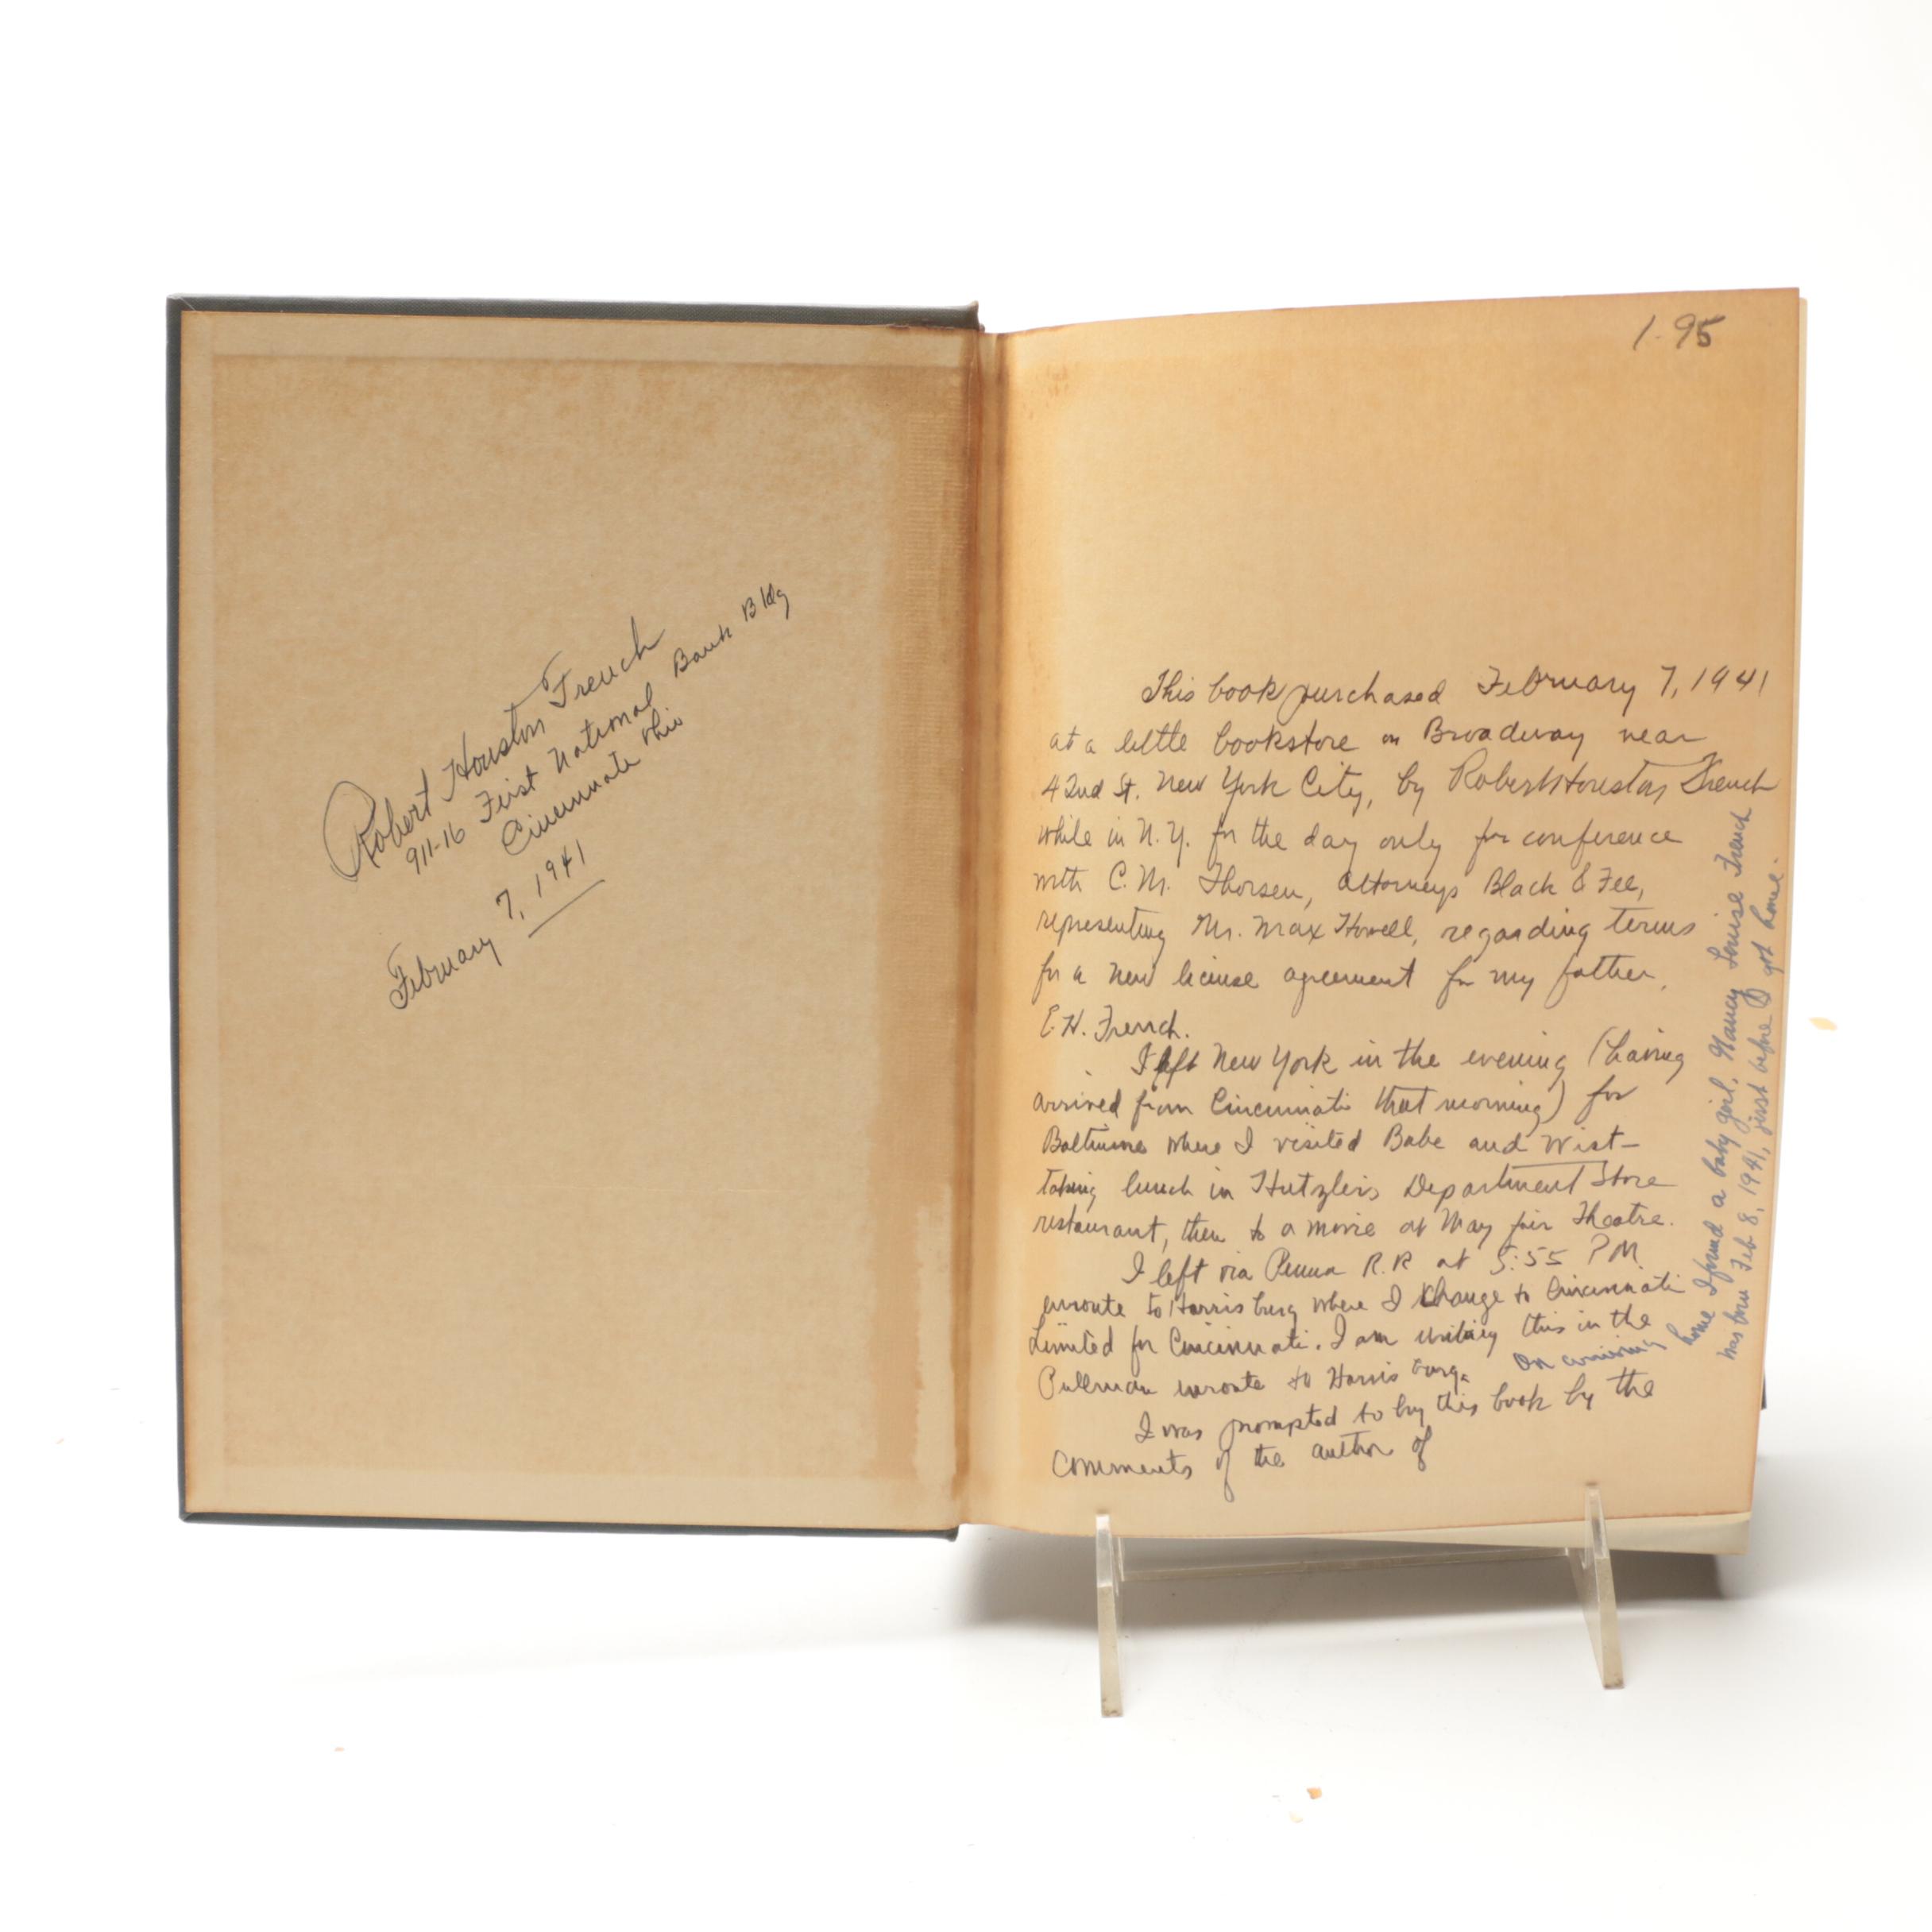 Robert Houston French
911-16 First National Bank Bldg
Cincinnati Ohio
February 7, 1941
1.95
This book purchased February 7, 1941
at a little bookstore on Broadway near
42nd St. New York City, by Robert Houston French
while in N.Y. for the day only for conference
with C.M. Thorsen, Attorneys Black & Fee,
representing Mr. Max Howell, regarding terms
for a new license agreement for my father,
E.H. French.
I left New York in the evening (having
arrived from Cincinnati that morning) for
Baltimore where I visited Babe and Wist-
taking lunch in Hutzler's Department Store
restaurant, then to a movie at May fair Theatre.
I left via Penna R.R at 5:55 PM
enroute to Harrisburg where I change to Cincinnati
Limited for Cincinnati. I am writing this in the
Pullman enroute to Harrisburg. On arriving
home I found a baby girl, Nancy Louise French
was born Feb 8, 1941, just before I got home.
I was prompted to buy this book by the
comments of the author of